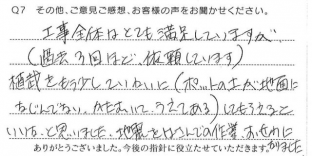 Q7 その他、ご意見ご感想、お客様の声をお聞かせください。
工事全体はとても満足していますが
(過去3回ほど、依頼しています)
植栽をもう少していねいに(ポットの土が地面に
なじんでない。かたまって、うえてある)してもらえると
いいな、と思いました。地震をはさんでの作業、お世わに
なりました
ありがとうございました。今後の指針に役立たせていただきます。